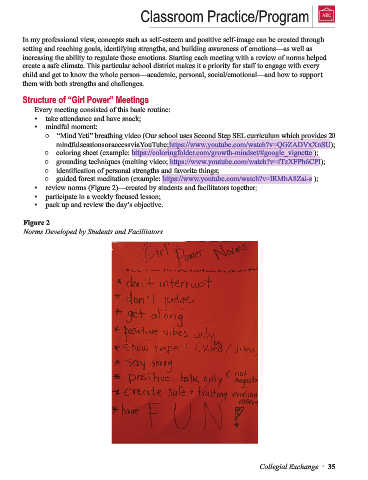 Classroom Practice/Program
ABC
In my professional view, concepts such as self-esteem and positive self-image can be created through
setting and reaching goals, identifying strengths, and building awareness of emotions—as well as
increasing the ability to regulate those emotions. Starting each meeting with a review of norms helped
create a safe climate. This particular school district makes it a priority for staff to engage with every
child and get to know the whole person—academic, personal, social/emotional—and how to support
them with both strengths and challenges.
Structure of “Girl Power” Meetings
Every meeting consisted of this basic routine:
• take attendance and have snack;
• mindful moment:
o “Mind Yeti” breathing video (Our school uses Second Step SEL curriculum which provides 20
mindful sessions or access via YouTube;
o coloring sheet (example: https://coloringfolder.com/growth-mindset/#google_vignette );
o grounding techniques (melting video;
o identification of personal strengths and favorite things;
o guided forest meditation (example:
• review norms (Figure 2)—created by students and facilitators together;
• participate in a weekly focused lesson;
• pack up and review the day's objective.
Figure 2
Norms Developed by Students and Facilitators
Girl Power Norms
* don't interrupt
* don't judge
* get along
* positive vibes only
* Show respect
* Stay strong
* positive talk only
* create safe + trusting
* have FUN!
Collegial Exchange · 35